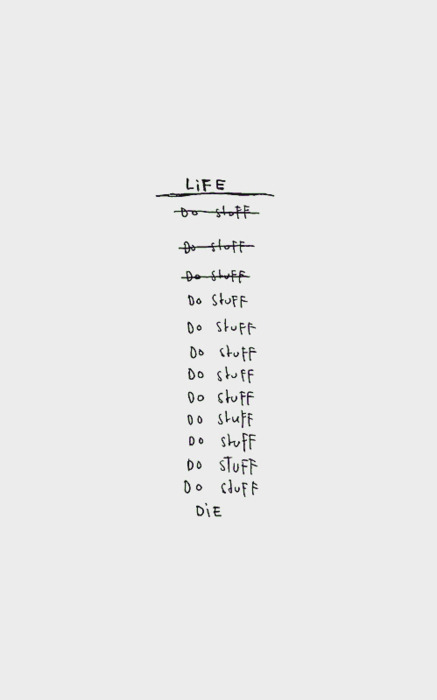 LiFE
Do stuff
Do stuff
Do StuFF
Do StuFF
Do stuFF
Do stuFF
Do stuFF
Do stuFF
Do stuff
Do stuFF
Do STuFF
Do stuFF
DiE